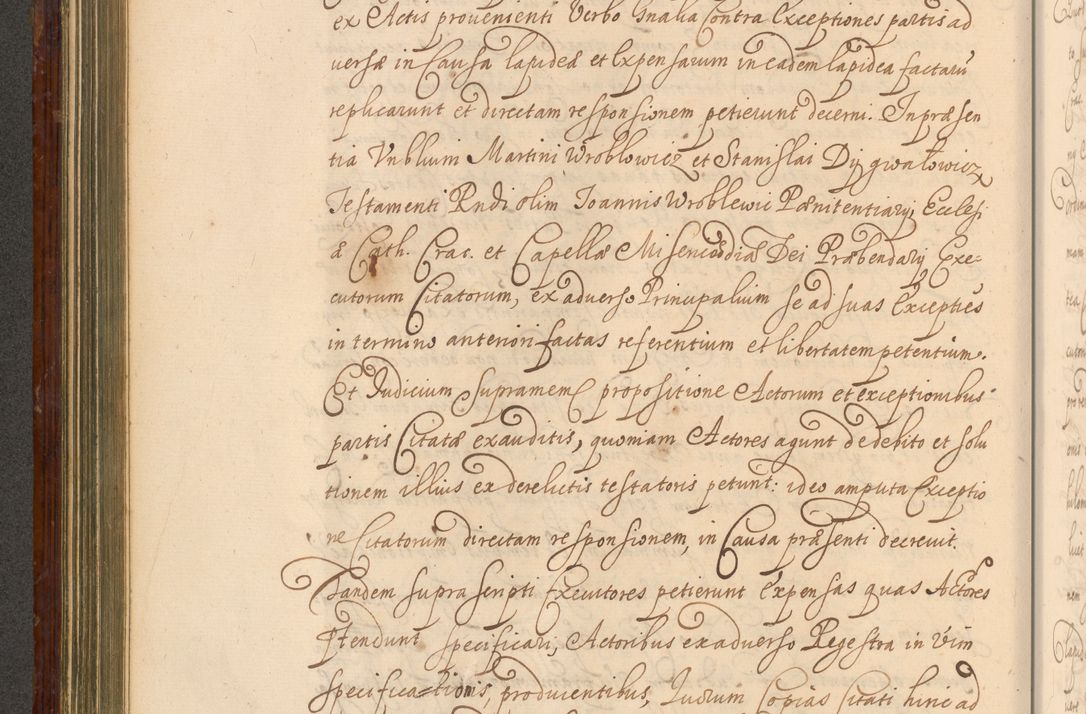 ex Actis provenienti Verbo Gnalia Contra Exceptiones partis ad
versæ in Causa lapideæ et Expensarum in eadem lapidea factarū
replicarunt et directam responsionem petierunt decerni. In præsen
tia Vnblium Martini Wroblowicz et Stanislai Dÿgionłowicz
Testamenti Rndi olim Joannis Wroblewic Pænitentiarÿ Ecclesi
æ Cath. Crac. et Capellæ Misericordiæ Dei Præbendarÿ Exe-
cutorum Citatorum, ex adverso Principalium se ad suas Exceptiēs
in termino anteriori factas referentium et libertatem petentium.
Et Judicium Supramem propositione Actorum et exceptionibus
partis Citatæ exauditis, quoniam Actores agunt de debito et solu
tionem illius ex derelictis testatoris petunt: ideo amputa Exceptio
ne Citatorum directam responsionem, in Causa præsenti decrevit.
Tandem suprascripti Executores petierunt Expensas quas Actores
Ptendunt specificari, Actoribus ex adverso Regestra in Vim
specifica=tionis, producentibus, Quorum Copias Citati hinc ad